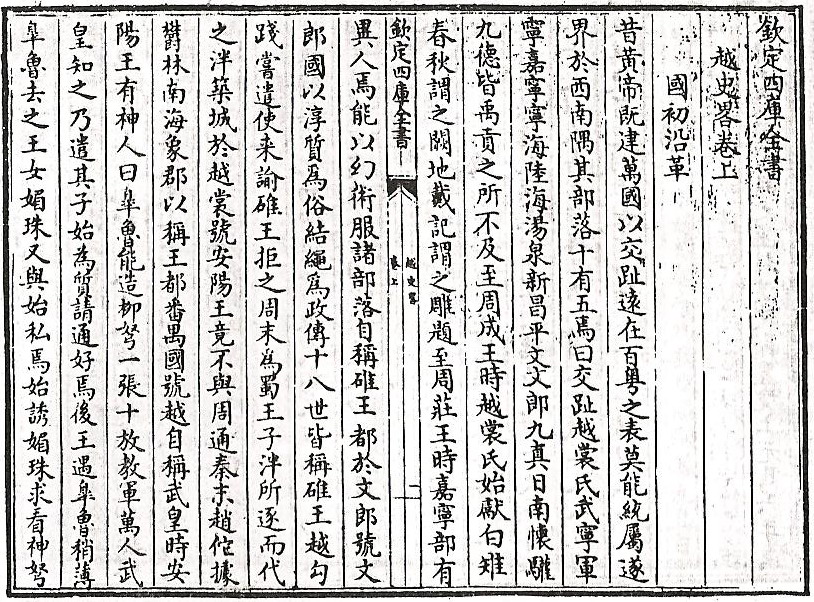 欽定四庫全書
越史畧卷上
國初沿革
昔黃帝既建萬國以交趾遠在百粤之表莫能統屬遂
界於西南隅其部落十有五焉曰交趾越裳氏武寧軍
寧嘉寧寧海陸海湯泉新昌平文文郎九真日南懷驩
九德皆禹貢之所不及至周成王時越裳氏始獻白雉
春秋謂之闕地戴記謂之雕題至周莊王時嘉寧部有
欽定四庫全書
越史畧
卷上
異人焉能以幻術服諸部落自稱碓王都於文郎號文
郎國以淳質爲俗結繩爲政傳十八世皆稱碓王越勾
踐嘗遣使来諭碓王拒之周末爲蜀王子泮所逐而代
之泮築城於越裳號安陽王竟不與周通秦末趙佗據
欝林南海象郡以稱王都番禺國號越自稱武皇時安
陽王有神人曰臯魯能造柳弩一張十放教軍萬人武
皇知之乃遣其子始為質請通好焉後王遇臯魯稍薄
臯魯去之王女媚珠又與始私焉始誘媚珠求看神弩